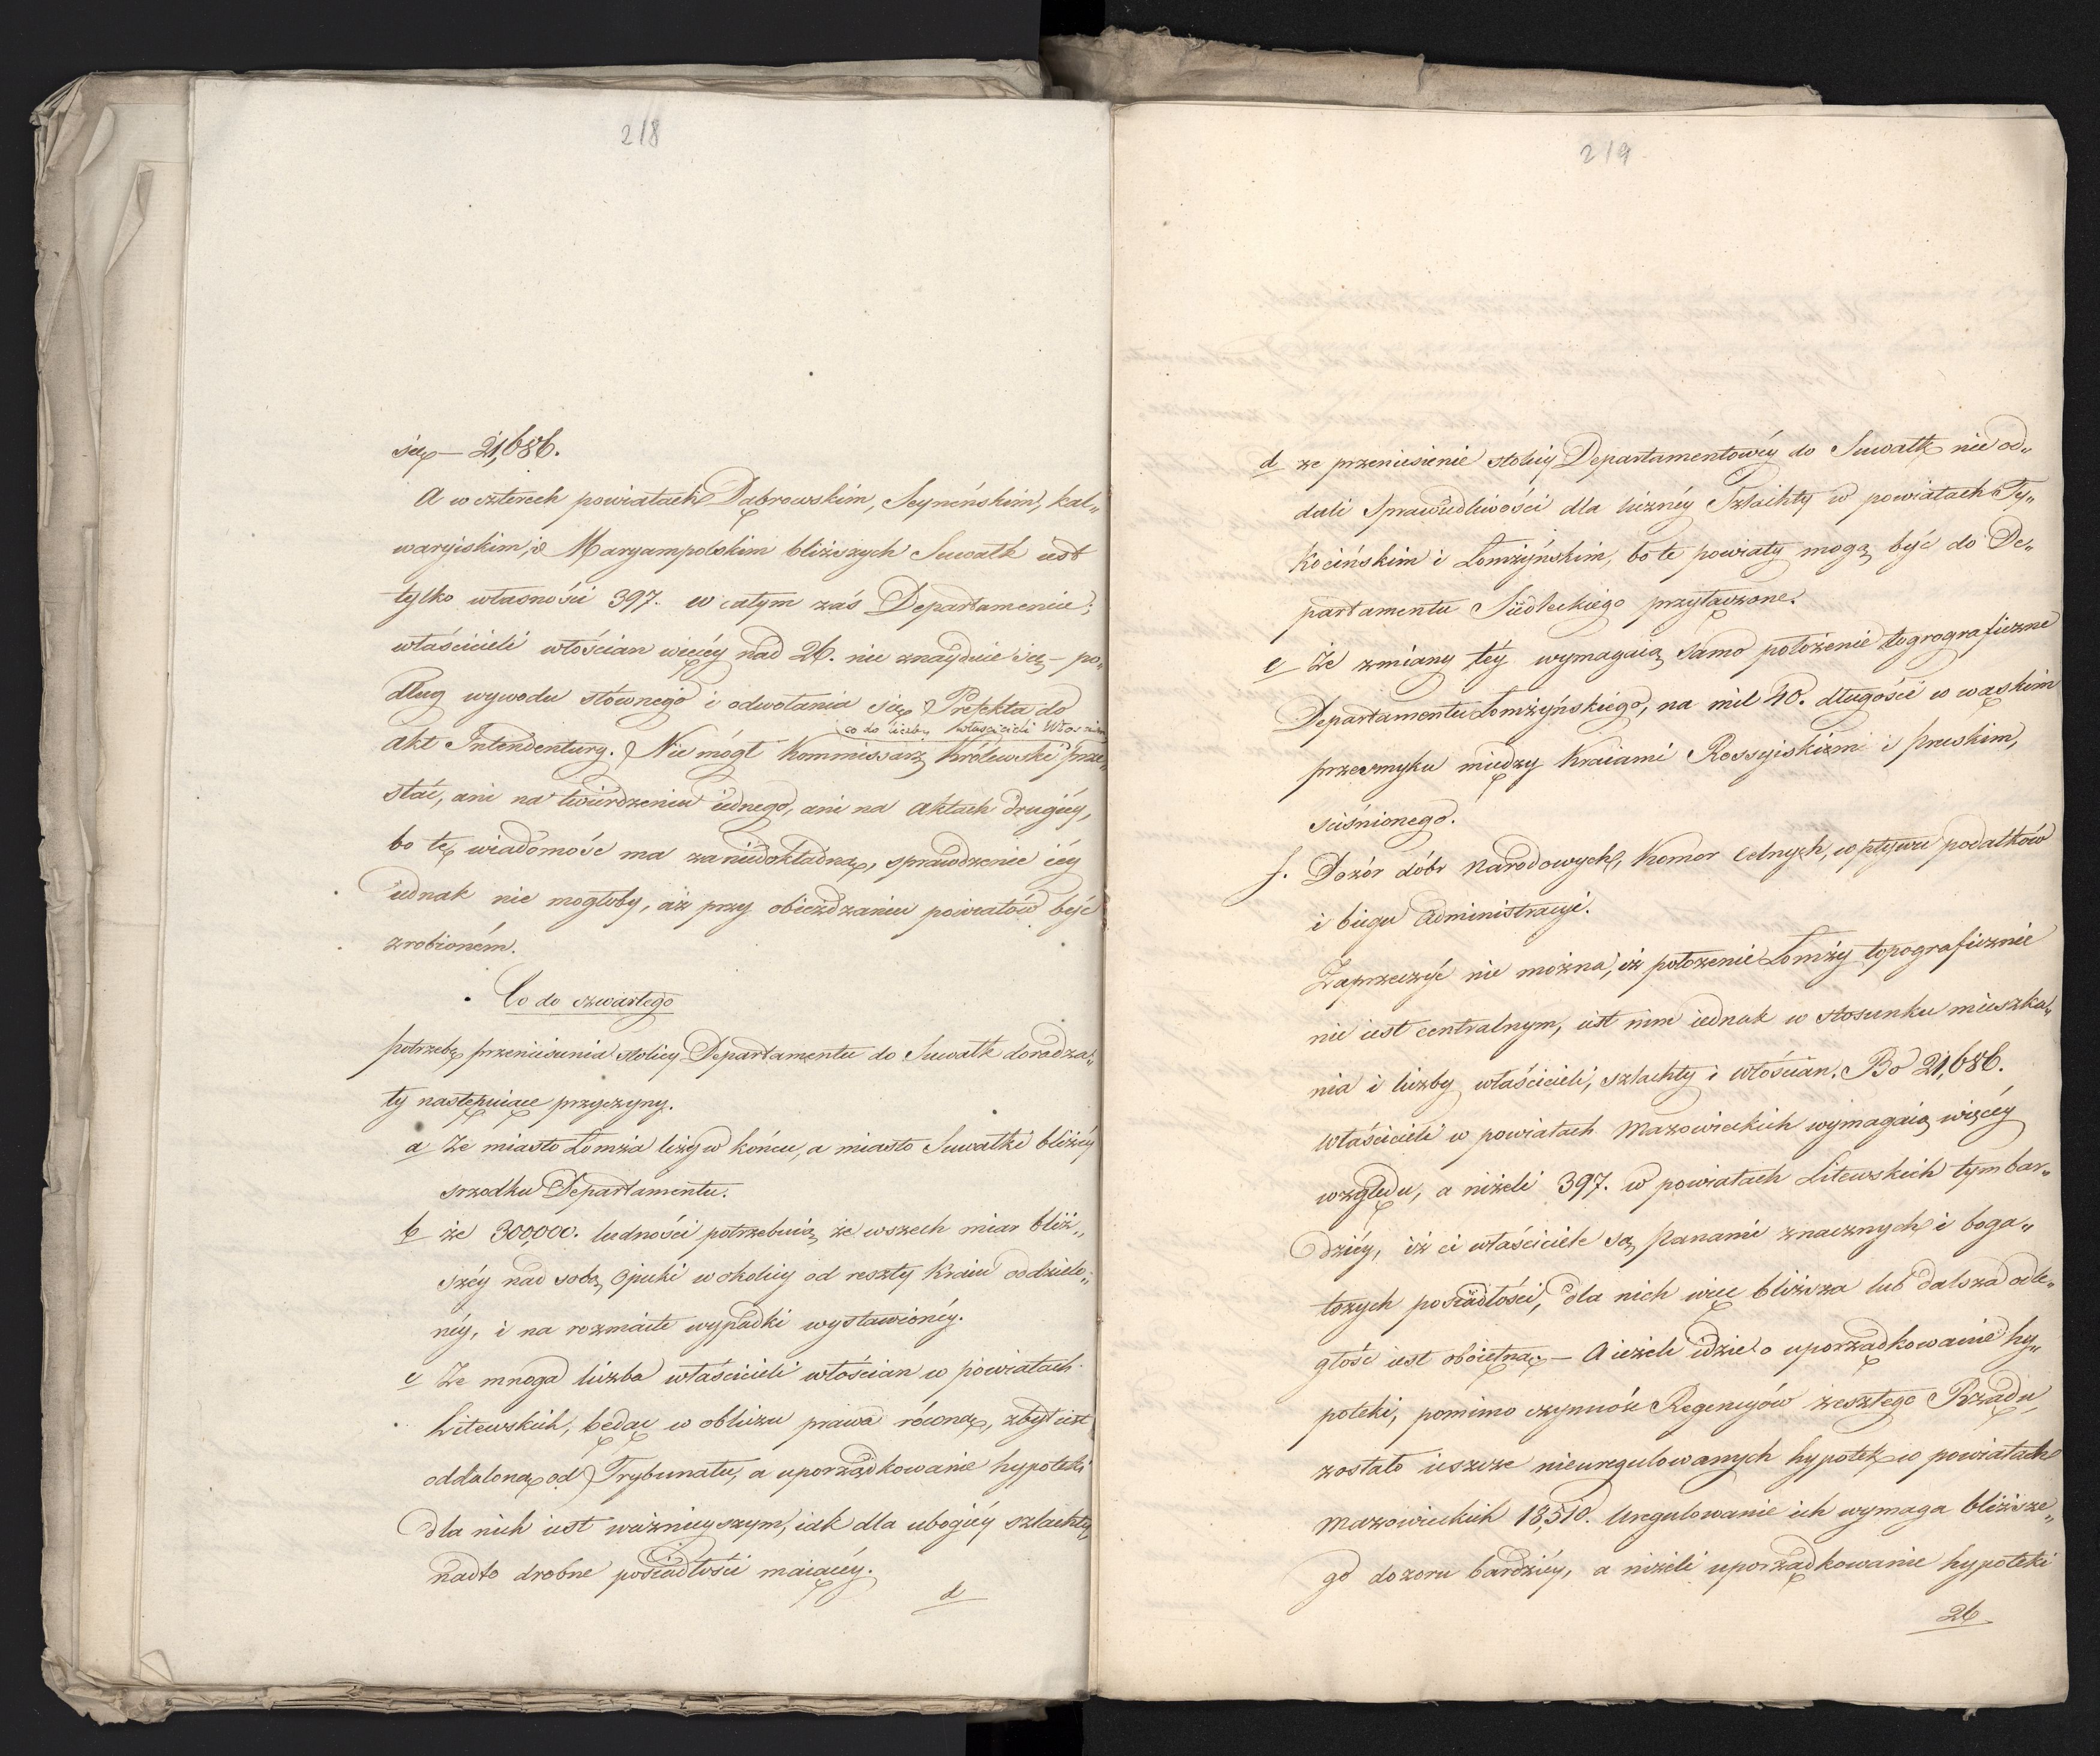 218
się — 21,686.
A w czterech powiatach Dąbrowskim, Seyneńskim, kal„
waryiskim, i Maryampolskim bliższych Suwałk iest
tylko własności 397. w całym zaś Departamencie;
właścicieli włościan więcéy nad 26. nie znayduie się — po„
dług wywodu słownego i odwołania się Prefekta do
co do liczby właścicieli Włościan
Akt Intendentury. Nie mógł Kommissarz Królewski prze„
stać, ani na twierdzeniu iednego, ani na Aktach drugiéy,
bo tę wiadomość ma za niedokładną, sprawdzenie iéy
iednak nie mogłoby, aż przy obieżdzaniu powiatów być
zrobioném.
Co do czwartego
potrzebę przeniesienia stolicy Departamentu do Suwałk doradza„
ły następuiące przyczyny.
a Że miasto Łomża leży w końcu, a miasto Suwałki bliżéy
srzodku Departamentu.
b że 300,000. ludności potrzebuią ze wszech miar bliż„
széy nad sobą Opieki w okolicy od reszty Kraiu oddzielo„
néy, i na rozmaite wypadki wystawionéy.
c Że mnoga liczba właścicieli włościan w powiatach
Litewskich, będąc w obliczu prawa równą, zbyt iest
oddaloną od Trybunału, a uporządkowanie hypoteki
dla nich iest ważnieyszym, iak dla ubogiéy szlachty,
nadto drobne posiadłości maiącéy.
d
219
d że przeniesienie stolicy Departamentowéy do Suwałk nie od„
dali Sprawiedliwości dla liczney Szlachty w powiatach Ty„
kocińskim i Łomżyńskim, bo te powiaty mogą być do De„
partamentu Siedleckiego przyłączone.
e Że zmiany téy wymagaią samo położenie togrograficzne
Departamentu Łomżyńskiego, na mil 40. długości w wąskim
przesmyku między Kraiami Rossyiskiemi i Pruskim,
ściśnionego.
f. Dozór dóbr Narodowych, Komor Celnych, wpływu podatków
i biegu Administracyi.
Zaprzeczyć nie można, iż położenie Łomży topograficznie
nie iest centralnym, iest nim iednak w stosunku mieszka„
nia i liczby właścicieli, szlachty i włościan. Bo 21,686.
Właścicieli w powiatach Mazowieckich wymagaią więcéy
względu, a niżeli 397. w powiatach Litewskich tym bar„
dziéy, iż ci właściciele są Panami znacznych i boga„
tszych posiadłości, dla nich więc bliższa lub dalsza odle„
głość iest oboiętną. — A ieżeli idzie o uporządkowanie hy„
poteki, pomimo czynność Regencyów zeszłego Rządu,
zostało ieszcze nieuregulowanych hypotek w powiatach
Mazowieckich 18,510. Uregulowanie ich wymaga bliższe„
go dozoru bardziéy, a niżeli uporządkowanie hypoteki
26